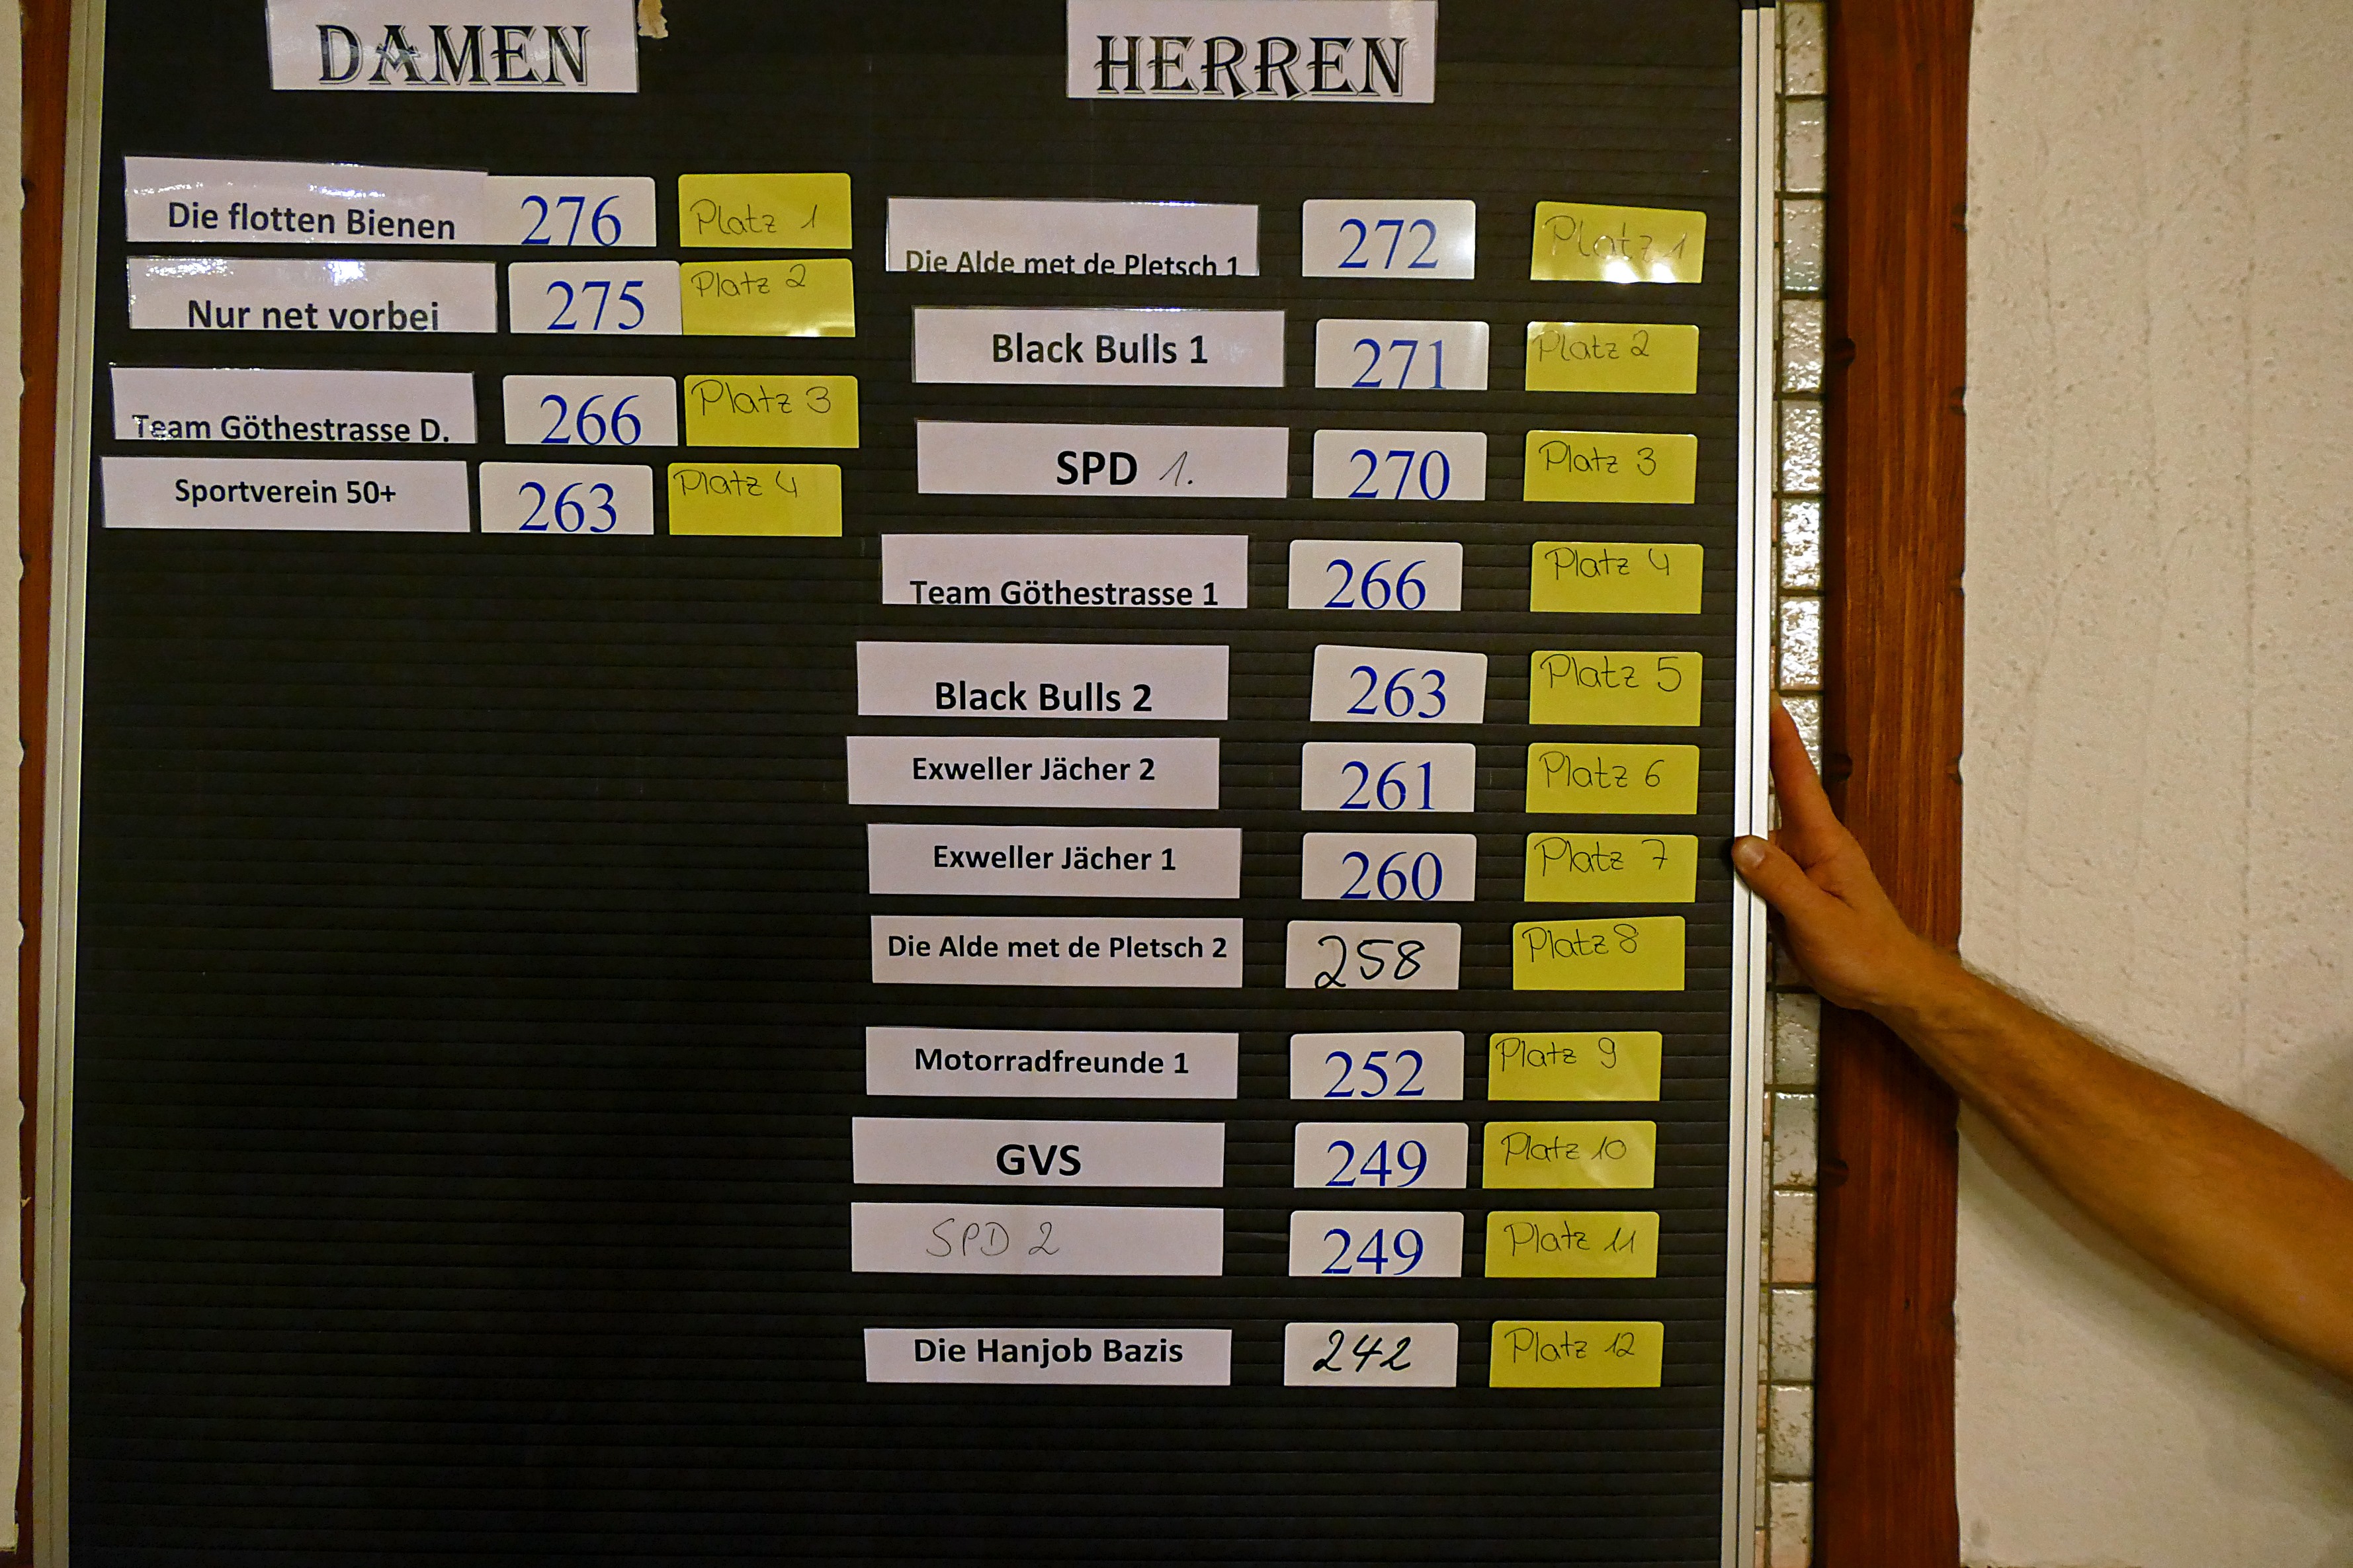 DAMEN
Die flotten Bienen 276 Platz 1
Nur net vorbei 275 Platz 2
Team Göthestrasse D. 266 Platz 3
Sportverein 50+ 263 Platz 4
HERREN
Die Alde met de Pletsch 1 272 Platz 1
Black Bulls 1 271 Platz 2
SPD 1. 270 Platz 3
Team Göthestrasse 1 266 Platz 4
Black Bulls 2 263 Platz 5
Exweller Jächer 2 261 Platz 6
Exweller Jächer 1 260 Platz 7
Die Alde met de Pletsch 2 258 Platz 8
Motorradfreunde 1 252 Platz 9
GVS 249 Platz 10
SPD 2 249 Platz 11
Die Hanjob Bazis 242 Platz 12